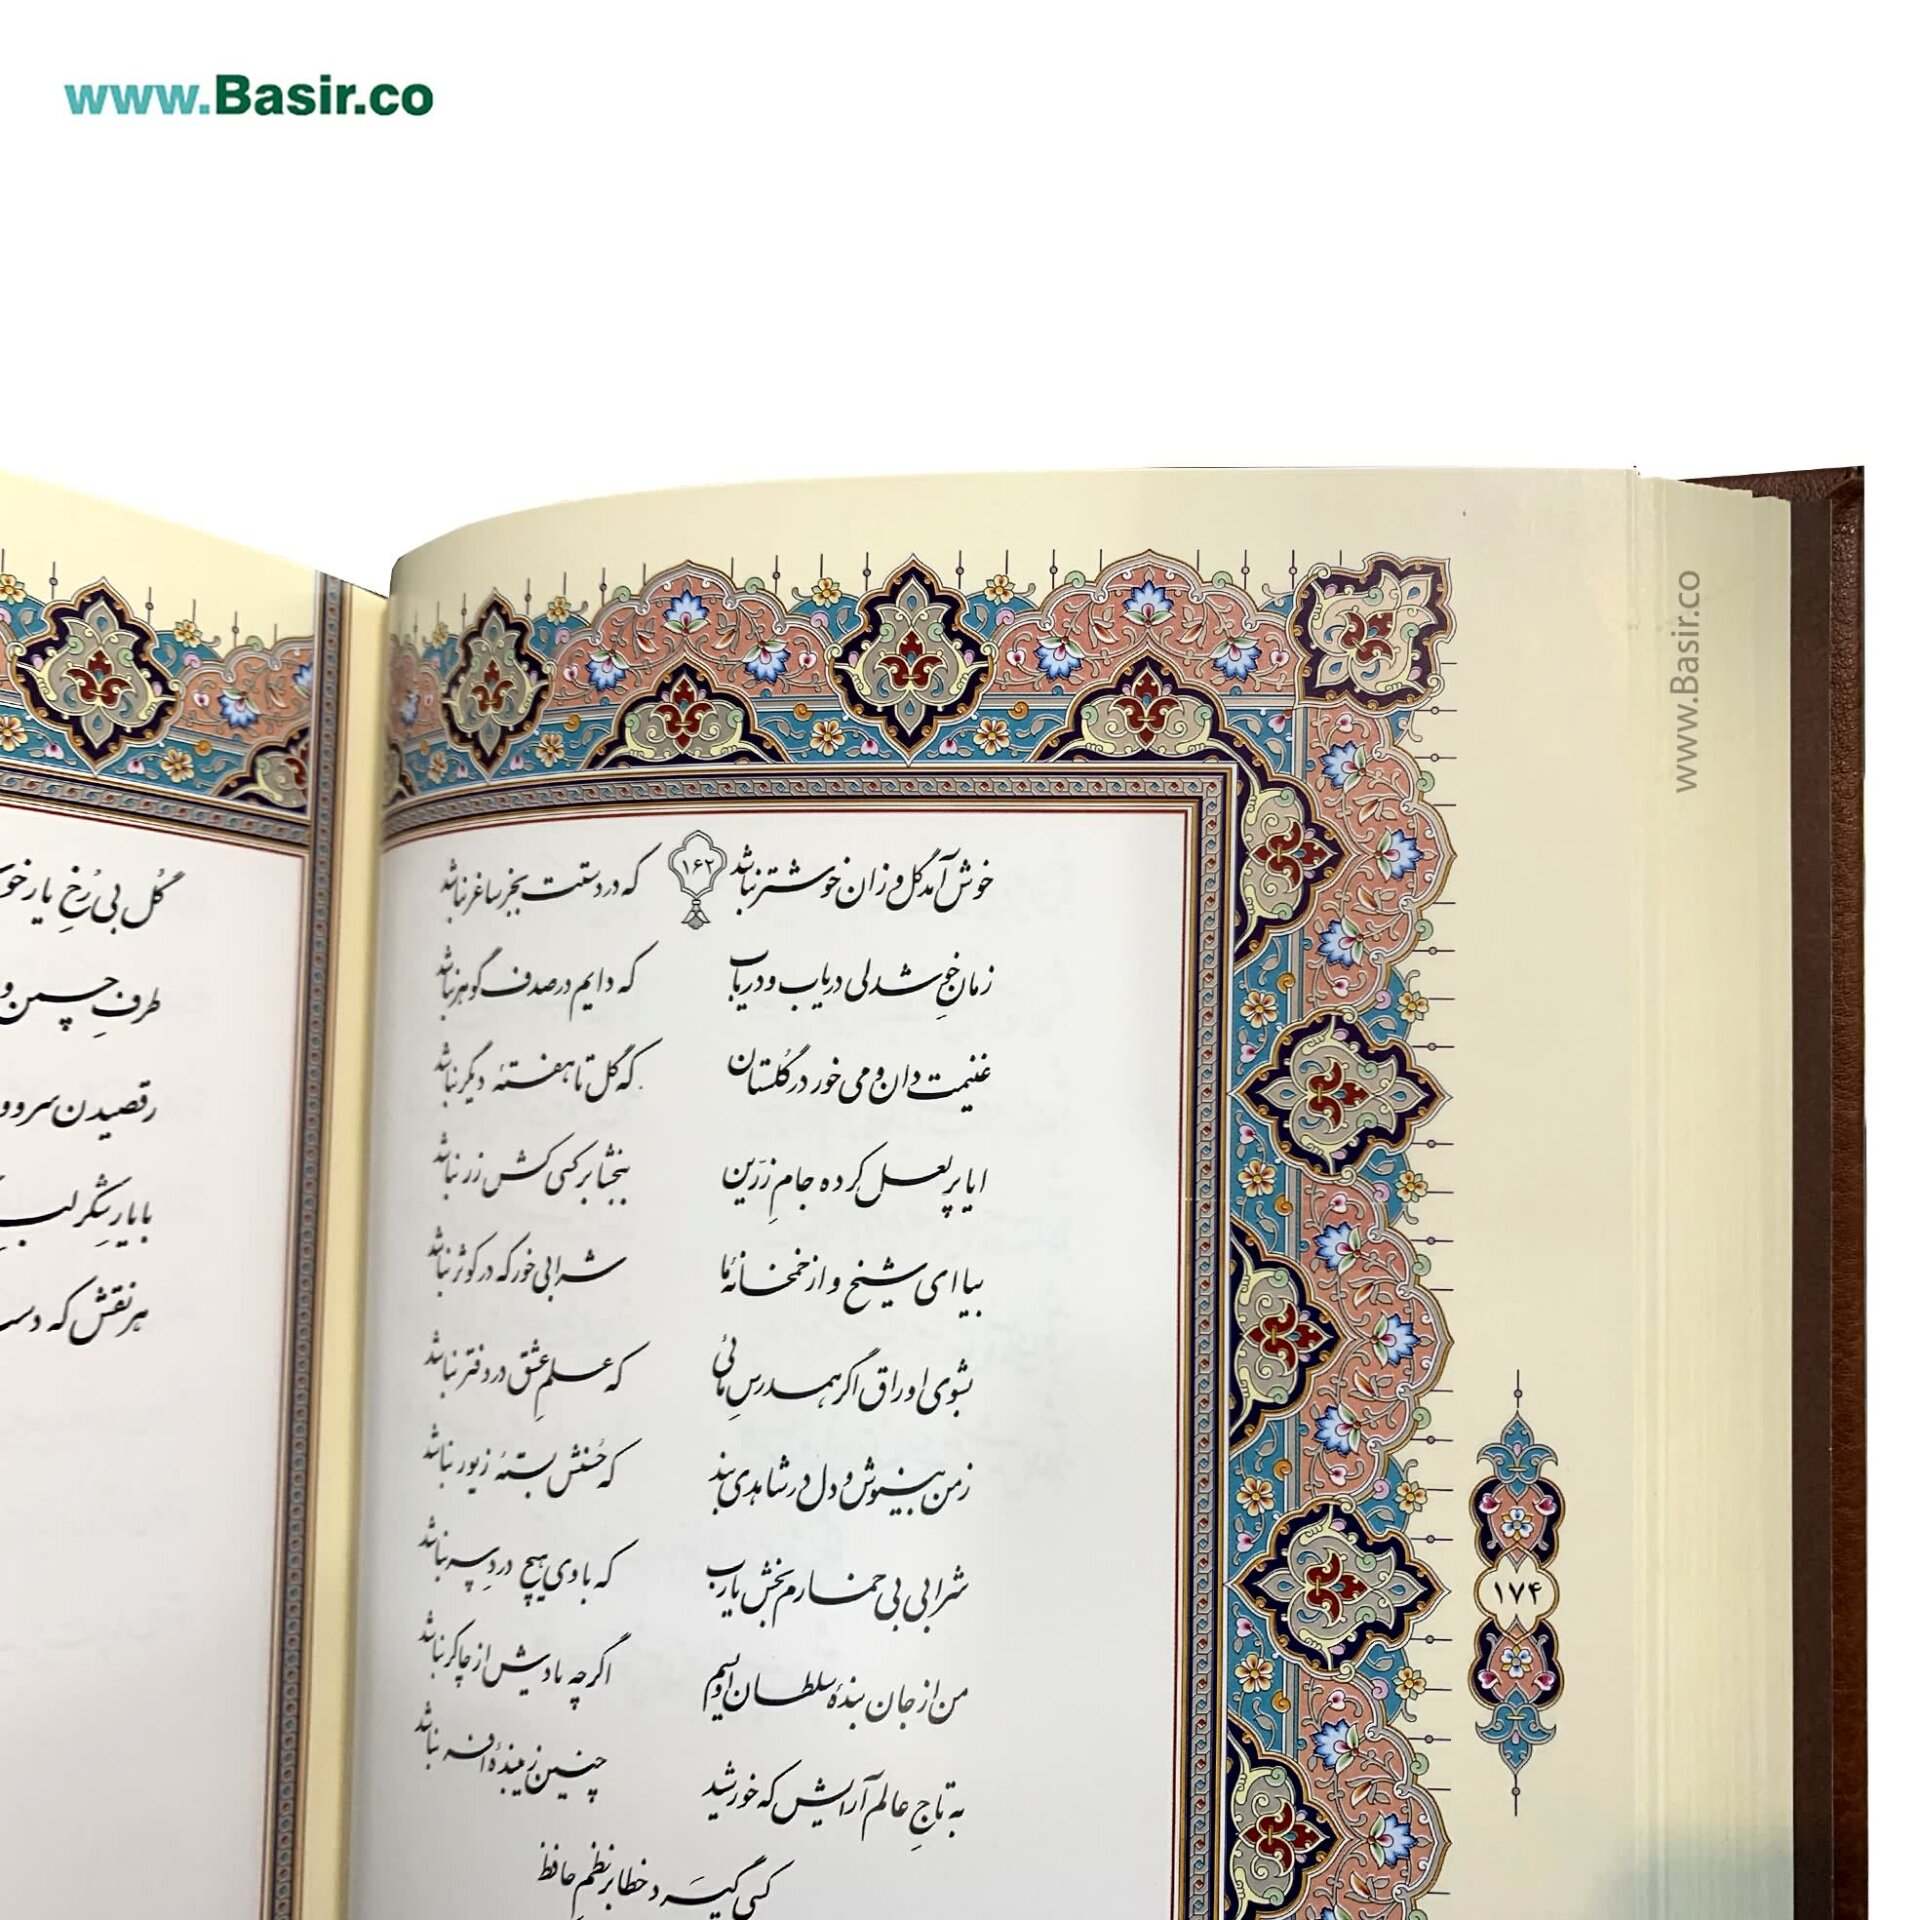 www.Basir.co
www.Basir.co
۱۶۲
خوش آمد گل وزان خوشتر نباشد که در دستت بجز ساغر نباشد
زمانِ خوشدلی دریاب و دریاب که دایم در صدف گوهر نباشد
غنیمت دان و می خور در گُلستان که گل تا هفتهٔ دیگر نباشد
ایا پر لعل کرده جامِ زرّین ببخشا بر کسی کش زر نباشد
بیا ای شیخ و از خمخانهٔ ما شرابی خور که در کوثر نباشد
بشوی اوراق اگر همدرسِ مائی که علمِ عشق در دفتر نباشد
ز من بنیوش و دل در شاهدی بند که حُسنش بستهٔ زیور نباشد
شرابی بی خمارم بخش یارب که با وی هیچ دردِ سر نباشد
من از جان بندهٔ سلطان اویسم اگر چه یادش از چاکر نباشد
به تاجِ عالم آرایش که خورشید چنین زیبندهٔ افسر نباشد
کسی گیرد خطا بر نظمِ حافظ
۱۷۴
گُل بی رُخِ یار
طرفِ چمن و
رقصیدن سرو و
با یارِ شکر لب
هر نقش که